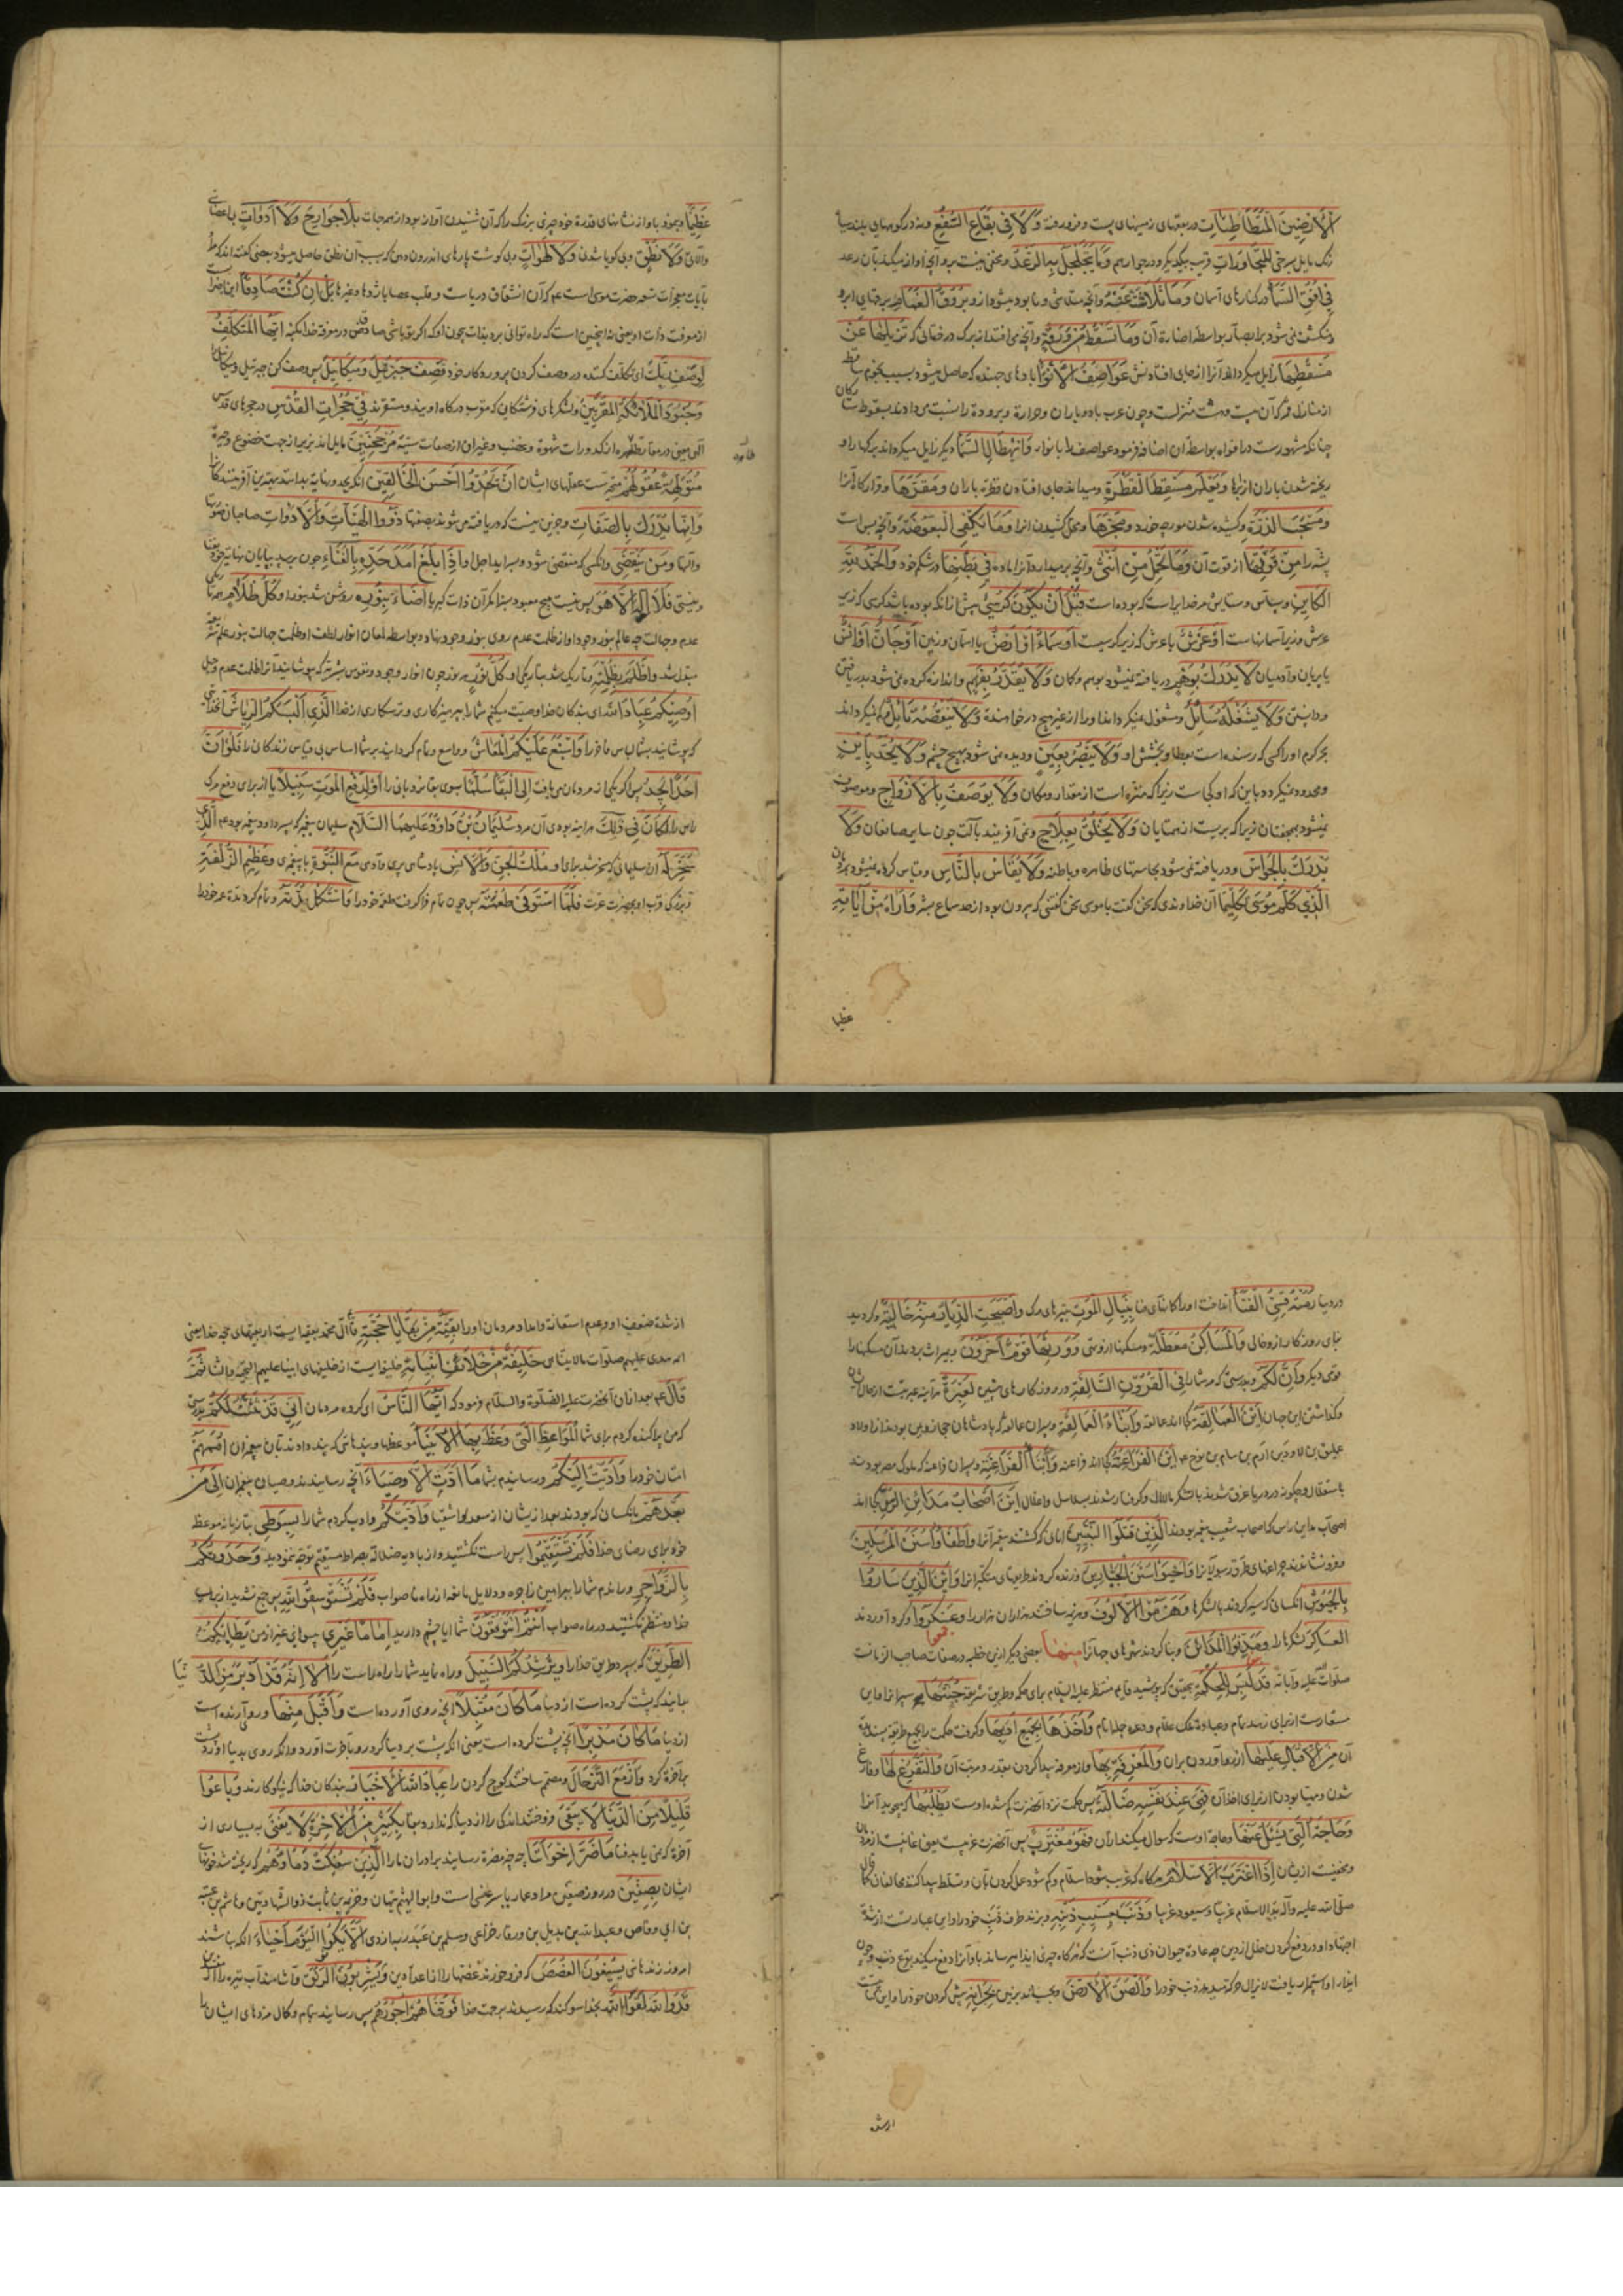 الْأَرَضِينَ الْمُتَطَأْطِئَاتِ در بقعهای زمینهای پست و فرو رفته وَلَا فِي بِقَاعِ السُّفْعِ و نه در کوههایی بلند سیاه
رنک مایل بسرخی الْمُتَجَاوِرَاتِ قریب بیکدیکر و در جوار هم وَمَا يَتَجَلْجَلُ بِهِ الرَّعْدُ و مخفی نیست برو آنچه آواز میکند بآن رعد
فِي أُفُقِ السَّمَاءِ در کنارهای آسمان وَمَا تَلَاشَتْ عَنْهُ و آنچه متلاشی و نابود میشود از و بُرُوقُ الْغَمَامِ برقهای ابر و
منکشف نمی شود بر ابصار بواسطه اضاءة آن وَمَا تَسْقُطُ مِنْ وَرَقَةٍ و آنچه می افتد از برک درختانی که تُزِيلُهَا عَنْ
مَسْقَطِهَا زایل میکرداند آنرا از جای افتادنش عَوَاصِفُ الْأَنْوَاءِ بادهای جهنده که حاصل میشود بسبب نجوم ساقط
از منازل قمر که آن بیست و هشت منزلست و چون عرب باد و باران و حرارة و برودة را نسبت می دادند بسقوط
چنانکه مشهورست در افواه بواسطه آن اضافه فرمود عواصف را بانواء وَانْهِطَالُ السَّمَاءِ دیکر زایل میکرداند برکها را
ریخته شدن باران از ابرها وَيَعْلَمُ مَسْقِطَ الْقَطْرَةِ و میداند جای افتادن قطره باران وَمَقَرَّهَا و قرارکاه آنرا
وَمَسْحَبَ الذَّرَّةِ و کشیده شدن مورچه خورد وَمَجَرَّهَا و محل کشیدن آنرا وَمَا يَكْفِي الْبَعُوضَةَ و آنچه بس است
پشه را مِنْ قُوتِهَا از قوت آن وَمَا تَحْمِلُ مِنْ أُنْثَى و آنچه بر میدارد آنرا ماده فِي بَطْنِهَا در شکم خود وَالْحَمْدُ لِلَّهِ
الْكَائِنِ و سپاس و ستایش مر خدایراست که بوده است قَبْلَ أَنْ يَكُونَ كُرْسِيٌّ پیش از آنکه بوده باشد کرسی که زیر
عرش و زبر آسمانهاست أَوْ عَرْشٌ یا عرش که زبر کرسیست أَوْ سَمَاءٌ أَوْ أَرْضٌ یا آسمان و زمین أَوْ جَانٌّ أَوْ إِنْسٌ
یا پریان و آدمیان لَا يُدْرَكُ بِوَهْمٍ دریافته نمیشود بوهم و کمان وَلَا يُقَدَّرُ بِفَهْمٍ و اندازه کرده نمی شود بدریافتن
و دانستن وَلَا يَشْغَلُهُ سَائِلٌ و مشغول نمیکرداند او را از غیر هیچ درخواهنده وَلَا يَنْقُصُهُ نَائِلٌ و کم نمیکرداند
بحر کرم او را کسی که رسنده است بعطا و بخشش او وَلَا يَنْظُرُ بِعَيْنٍ و دیده نمی شود بهیچ چشم وَلَا يُحَدُّ بِأَيْنٍ
و محدود نمیکردد باین که او کجاست زیرا که منزه است از مقدار و مکان وَلَا يُوصَفُ بِالْأَزْوَاجِ و موصوف
نمیشود بجفتان زیرا که بریست از همتایان وَلَا يَخْلُقُ بِعِلَاجٍ و نمی آفریند بآلت چون سایر صانعان وَلَا
يُدْرَكُ بِالْحَوَاسِّ و دریافته نمی شود بحاستهای ظاهره و باطنه وَلَا يُقَاسُ بِالنَّاسِ و قیاس کرده نمیشود بمردمان
الَّذِي كَلَّمَ مُوسَى تَكْلِيمًا آن خداوندی که سخن کفت با موسی سخن کفتنی که بیرون بود از حد سماع بشر وَأَرَاهُ مِنْ آيَاتِهِ
عظیما
عَظِيمًا و نمود باو از نشانهای قدرة خود چیزی بزرک را که آن شنیدن آواز بود از همه جهات بِلَا جَوَارِحَ وَلَا أَدَوَاتٍ بی اعضایی
و آلاتی وَلَا نُطْقٍ و بی کویا شدن وَلَا لَهَوَاتٍ و بی کوشت پارهای اندرون دهن که بسبب آن نطق حاصل میشود بعضی کفته اند که مراد
بآیات معجزات تسعه حضرت موسی است عم که آن انشقاق دریاست و قلب عصا باژدها و غیرها بَلْ إِنْ كُنْتَ صَادِقًا
از معرفت ذات او یعنی نه اینچنین است که راه توانی برد بذات بیچون او که اکر تو باشی صادق در معرفة خدا أَيُّهَا الْمُتَكَلِّفُ
لِوَصْفِ رَبِّكَ ای تکلف کننده در وصف کردن پروردکار خود فَصِفْ جِبْرِيلَ وَمِيكَائِيلَ پس وصف کن جبرئیل و میکائیل
وَجُنُودَ الْمَلَائِكَةِ الْمُقَرَّبِينَ و لشکرهای فرشتکان که مقرب درکاه اویند و مستقرند فِي حُجُرَاتِ الْقُدُسِ در حجرهای قدس
الهی یعنی در مقار مطهره از کدورات شهوة و غضب و غیر آن از صفات سیئه مُرْجَحِنِّينَ مایل اند بزیر از جهت خضوع و حیرة
مُتَوَلِّهَةً عُقُولُهُمْ متحیرست عقلهای ایشان أَنْ يَحُدُّوا أَحْسَنَ الْخَالِقِينَ آنکه بحد و نهایة بدانند بهترین آفرینندکانرا
وَإِنَّمَا يُدْرَكُ بِالصِّفَاتِ و جز این نیست که دریافته می شوند بصفتها ذَوُو الْهَيْئَاتِ وَالْأَدَوَاتِ صاحبان صورتها
و آلتها وَمَنْ يَنْقَضِي و آنکسی که منقضی شود و سر آید اجل او إِذَا بَلَغَ أَمَدَ حَدِّهِ بِالْفَنَاءِ چون برسد بپایان نهایة خود
و نیستی فَلَا إِلَهَ إِلَّا هُوَ پس نیست هیچ معبود بسزا مکر آن ذات کبریا أَضَاءَ بِنُورِهِ روشن شد بنور او كُلَّ ظَلَامٍ هر تاریکی
عدم و جهالت چه عالم بنور وجود او از ظلمت عدم روی بنور وجود نهاد و بواسطه لمعان انوار لطف او ظلمت جهالت بنور علم
مبدل شد وَأَظْلَمَ بِظُلْمَتِهِ و تاریک شد بتاریکی او كُلُّ نُورٍ هر نور چون انوار وجود و نفوس بشریه که پوشانید آنرا بظلمت عدم و جهل
أُوصِيكُمْ عِبَادَ اللَّهِ ای بندکان خدا وصیت میکنم شما را بپرهیزکاری و ترسکاری از خدا الَّذِي أَلْبَسَكُمُ الرِّيَاشَ
که پوشانید بشما لباس فاخر را وَأَسْبَغَ عَلَيْكُمُ الْمَعَاشَ و واسع و تمام کردانید بر شما اساس بی قیاس زندکانی را فَلَوْ أَنَّ
أَحَدًا يَجِدُ پس اکر یکی از مردمان می یافت إِلَى الْبَقَاءِ سُلَّمًا بسوی بقا نردبانی را أَوْ لِدَفْعِ الْمَوْتِ سَبِيلًا یا از برای دفع مرک
راهی را لَكَانَ فِي ذَلِكَ هر آینه بودی آن مرد سُلَيْمَانَ بْنَ دَاوُدَ عَلَيْهِمَا السَّلَامُ سلیمان پیغمبر که پسر داود پیغمبر بود عم الَّذِي
سُخِّرَ لَهُ آن سلیمانی که مسخر شد برای او مُلْكُ الْجِنِّ وَالْإِنْسِ پادشاهی پری و آدمی مَعَ النُّبُوَّةِ با پیغمبری وَعَظِيمِ الزُّلْفَةِ
و بزرکی قرب او بحضرت عزت فَلَمَّا اسْتَوْفَى طُعْمَتَهُ پس چون تمام فرا کرفت طعمه خود را وَاسْتَكْمَلَ مُدَّتَهُ و تمام کرد مدة عمر خود را
در دنیا رَمَتْهُ قِسِيُّ الْفَنَاءِ انداخت او را کمانهای فنا بِنِبَالِ الْمَوْتِ بتیرهای مرک وَأَصْبَحَتِ الدِّيَارُ مِنْهُ خَالِيَةً و کردید
بنای روزکار از و خالی وَالْمَسَاكِنُ مُعَطَّلَةً و مسکنها از و تهی وَوَرِثَهَا قَوْمٌ آخَرُونَ و بمیراث بردند آن مسکنها را
قومی دیکر وَإِنَّ لَكُمْ و بدرستی که مر شما را فِي الْقُرُونِ السَّالِفَةِ در روزکارهای پیشین لَعِبْرَةً هر آینه عبرتیست از حال ایشان
و کذاشتن این جهان أَيْنَ الْعَمَالِقَةُ کجا اند عمالقه وَأَبْنَاءُ الْعَمَالِقَةِ و پسران عمالقه که پادشاهان حجاز و یمن بودند از اولاد
عملیق بن لاود بن ارم بن سام بن نوح عم أَيْنَ الْفَرَاعِنَةُ کجا اند فراعنه وَأَبْنَاءُ الْفَرَاعِنَةِ و پسران فراعنه که ملوک مصر بودند
باستقلال و چکونه در دریا غرق شدند با لشکر مالامال و کرفتار شدند بسلاسل و اغلال أَيْنَ أَصْحَابُ مَدَائِنِ الرَّسِّ کجا اند
اصحاب مداین رس که اصحاب شعیب پیغمبر بودند الَّذِينَ قَتَلُوا النَّبِيِّينَ آنانی که کشتند پیغمبرانرا وَأَطْفَأُوا سُنَنَ الْمُرْسَلِينَ
و فرو نشاندند چراغهای طرق رسولانرا وَأَحْيَوْا سُنَنَ الْجَبَّارِينَ و زنده کردند طریقهای متکبرانرا وَأَيْنَ الَّذِينَ سَارُوا
بِالْجُيُوشِ آنکسانی که سیر کردند با لشکرها وَهَزَمُوا الْأُلُوفَ و هزیمه ساختند هزاران هزار را وَعَسْكَرُوا و کرد آوردند
الْعَسَاكِرَ لشکرها را وَمَدَّنُوا الْمَدَائِنَ و بنا کردند شهرهای جهانرا مِنْهَا بعضی دیکر ازین خطبه در صفات صاحب الزمانست
صلوات الله علیه و آبائه قَدْ لَبِسَ لِلْحِكْمَةِ بتحقیق که پوشید قایم منتظر علیه السلام برای حکمة و طریق شریعة جُنَّتَهَا سپر آنرا و این
ستعارت از برای زهد تمام و عبادة ملک علام وَأَخَذَهَا بِجَمِيعِ أَدَبِهَا و کرفت حکمت را بجمیع طریقه پسندیده
آن مِنَ الْإِقْبَالِ عَلَيْهَا از رو آوردن بر آن وَالْمَعْرِفَةِ بِهَا و از معرفه پیدا کردن بقدر و مرتبه آن وَالتَّفَرُّغِ لَهَا و فارغ
شدن و مهیا بودن از برای اخذ آن فَهِيَ عِنْدَ نَفْسِهِ ضَالَّتُهُ پس حکمت نزد آنحضرت کم شده اوست يَطْلُبُهَا که میجوید آنرا
وَحَاجَتُهُ الَّتِي يَسْأَلُ عَنْهَا و حاجة اوست که سوال میکند از آن فَهُوَ مُغْتَرِبٌ پس آنحضرت غریبست یعنی غایبست از مردمان
و مخفیست از ایشان إِذَا اغْتَرَبَ الْإِسْلَامُ هرکاه که غریب شود اسلام و کم شود عمل کردن بآن و تسلط پیدا کنند مخالفان
صلی الله علیه و آله بدأ الاسلام غریبا و سیعود غریبا وَضَرَبَ بِعَسِيبِ ذَنَبِهِ و بزند طرف ذنب خود را و این عبارتست از شدة
اجتهاد او در دفع کردن خلل از دین چه عادة حیوان ذی ذنب آنست که هرکاه چیزی ایذا میرساند باو آنرا دفع میکند بنوع ذنب
ایذاء او استمرار یافت لایزال حرکت میدهد ذنب خود را وَأَلْصَقَ الْأَرْضَ و بچسباند بزمین بِجِرَانِهِ پیش کردن خود را و این
از شدة
از شدة ضعف او و عدم استعانة و امداد مردمان او را بَقِيَّةٌ مِنْ بَقَايَا حُجَّتِهِ قایم آل محمد بقیه ایست از بقیهای حجة خدا یعنی
ائمه هدی علیهم صلوات خَلِيفَةٌ مِنْ خَلَائِفِ أَنْبِيَائِهِ خلیفه ایست از خلیفهای انبیا علیهم التحیة والثنا ثُمَّ
قَالَ عم بعد از آن آنحضرت علیه الصلوة والسلام فرمود که أَيُّهَا النَّاسُ ای کروه مردمان إِنِّي قَدْ بَثَثْتُ لَكُمُ بدرستی
که من پراکنده کردم برای شما الْمَوَاعِظَ الَّتِي وَعَظَ بِهَا الْأَنْبِيَاءُ موعظها و پندهایی که پند دادند بآن پیغمبران أُمَمَهُمْ
امتان خود را وَأَدَّيْتُ إِلَيْكُمْ و رسانیدم بشما مَا أَدَّتِ الْأَوْصِيَاءُ آنچه رسانیدند وصیان پیغمبران إِلَى مَنْ
بَعْدَهُمْ بآنکسان که بودند بعد از ایشان از سعدا و اشقیا وَأَدَّبْتُكُمْ و ادب کردم شما را بِسَوْطِي بتازیانه موعظه
خود برای رضای خدا فَلَمْ تَسْتَقِيمُوا پس راست نکشتید و از بادیه ضلالة بصراط مستقیم توجه ننمودید وَحَدَوْتُكُمْ
بِالزَّوَاجِرِ و راندم شما را ببراهین زاجره و دلایل مانعه از راه ناصواب فَلَمْ تَسْتَوْسِقُوا لِلَّهِ پس جمع نشدید از
خدا و منتظم نکشتید در راه صواب أَنْتُمْ أَتَتَوَقَّعُونَ شما ایا چشم دارید إِمَامًا غَيْرِي پیشوایی غیر از من يَطَأُ بِكُمُ
الطَّرِيقَ که بسپرد طریق خدا را وَيُرْشِدُكُمُ السَّبِيلَ و راه نماید شما را براه راست أَلَا إِنَّهُ قَدْ أَدْبَرَ مِنَ الدُّنْيَا
بدانید که پشت کرده است از دنیا مَا كَانَ مُقْبِلًا آنچه روی آورده است وَأَقْبَلَ مِنْهَا و روی آرنده است
از دنیا مَا كَانَ مُدْبِرًا آنچه پشت کرده است یعنی آنکه پشت بر دنیا کرد رو بآخرت آورد و آنکه روی بدنیا آورد پشت
بر آخرة کرد وَأَزْمَعَ التَّرْحَالَ و مصمم ساختند کوچ کردن را عِبَادُ اللَّهِ الْأَخْيَارُ بندکان خدا که نیکوکارند وَبَاعُوا
قَلِيلًا مِنَ الدُّنْيَا لَا يَبْقَى و فروختند اندکی را از دنیا که ندارد بقا بِكَثِيرٍ مِنَ الْآخِرَةِ لَا يَفْنَى به بسیاری از
آخرة که نمی یابد فنا مَا ضَرَّ إِخْوَانَنَا چه چیز مضرة رسانید برادران ما را الَّذِينَ سُفِكَتْ دِمَاؤُهُمْ که ریخته شد خونهای
ایشان بِصِفِّينَ در روز صفین مراد عمار یاسر عنسی است و ابوالهیثم بن تیهان و خزیمة بن ثابت ذوالشهادتین و هاشم بن عتبه
بن ابی وقاص و عبدالله بن بدیل بن ورقاء خزاعی أَلَّا يَكُونُوا الْيَوْمَ أَحْيَاءً آنکه نباشند
امروز زندهانی يُسِيغُونَ الْغُصَصَ که فرو خورند غصهها را وَيَشْرَبُونَ الرَّنْقَ و آشامند آب تیره را
قَدْ وَاللَّهِ لَقُوا اللَّهَ بخدا سوکند که رسیدند برحمت خدا فَوَفَّاهُمْ أُجُورَهُمْ پس رسانید بتمام و کمال مزدهای ایشان را